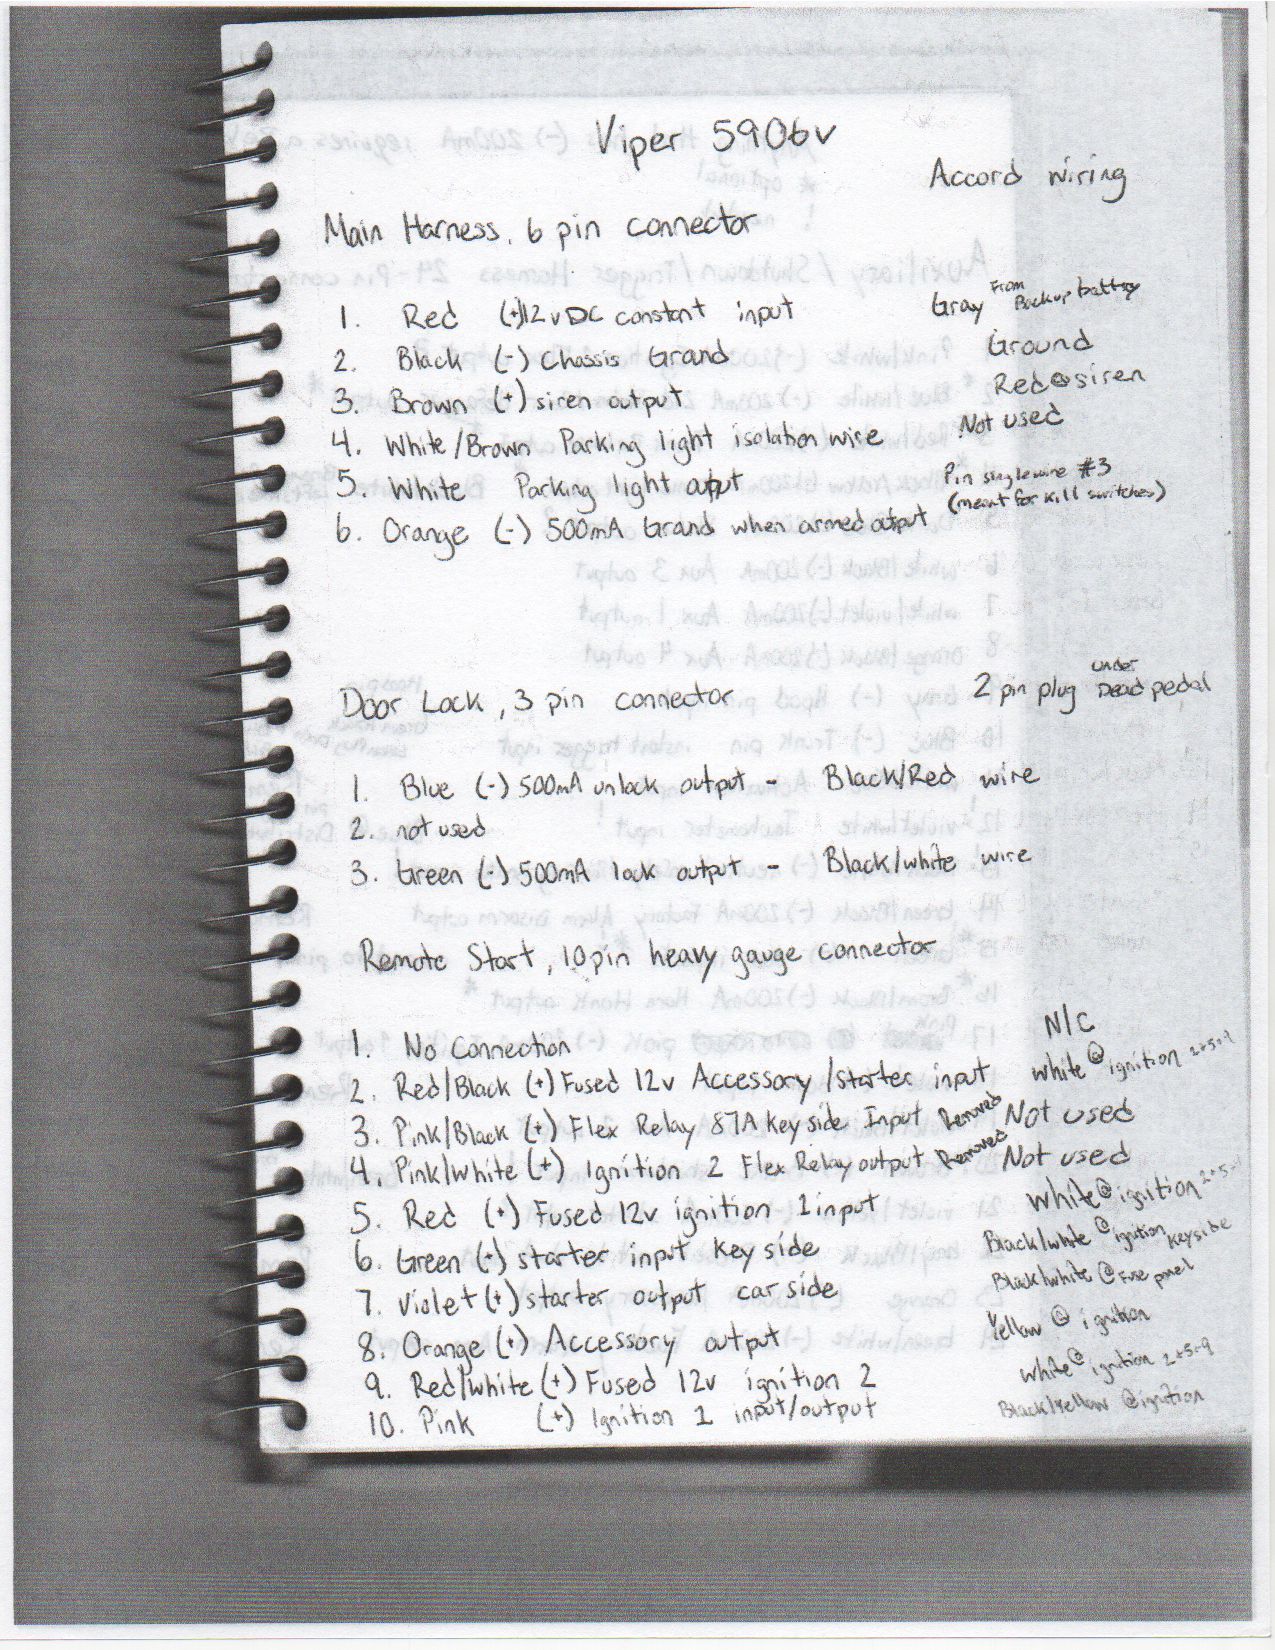 Viper 5906v
Accord wiring
Main Harness, 6 pin connector
1. Red (+)12vDC constant input Gray From Backup battery
2. Black (-) Chassis Grand Ground
3. Brown (+) siren output Red@siren
4. White/Brown Parking light isolation wire Not used
5. White Parking light output Pin single wire #3
6. Orange (-) 500mA Grand when armed output (meant for kill switches)
Door Lock, 3 pin connector 2 pin plug under Dead pedal
1. Blue (-) 500mA unlock output - Black/Red wire
2. not used
3. Green (-) 500mA lock output - Black/white wire
Remote Start, 10 pin heavy gauge connector
1. No Connection N/C
2. Red/Black (+) Fused 12v Accessory/starter input white@ignition
3. Pink/Black (+) Flex Relay 87A key side Input Removed Not used
4. Pink/white (+) Ignition 2 Flex Relay output Removed Not used
5. Red (+) Fused 12v ignition 1 input white@ignition
6. Green (+) starter input key side Black/white @ignition keyside
7. violet (+) starter output car side Black/white @ Fuse panel
8. Orange (+) Accessory output Yellow @ ignition
9. Red/white (+) Fused 12v ignition 2 white@ ignition 2+5+9
10. Pink (+) Ignition 1 input/output Black/Yellow @ignition